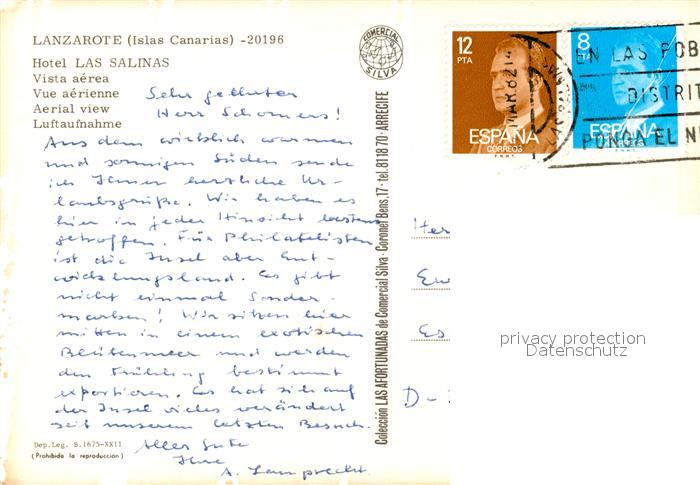 LANZAROTE (Islas Canarias) -20196
Hotel LAS SALINAS
Vista aérea
Vue aérienne
Aerial view
Luftaufnahme
Sehr geehrter
Herr Schomers!
Aus dem wirklich warmen
und sonnigen Süden sende
ich Ihnen herzliche Ur-
laubsgrüße. Wir haben es
hier in jeder Hinsicht bestens
getroffen. Für Philatelisten
ist die Insel aber Ent-
wicklungsland. Es gibt
nicht einmal Sonder-
marken! Wir sitzen hier
mitten in einem exotischen
Blütenmeer und werden
den Frühling bestimmt
exportieren. Es hat sich auf
der Insel vieles verändert
seit unserem letzten Besuch.
Alles Gute
Ihre
A. Lamprecht
Dep. Leg. B. 1675-XXII
(Prohibida la reproducción)
COMERCIAL
SILVA
Colección LAS AFORTUNADAS de Comercial Silva · Coronel Bens, 17 · tel. 811870 · ARRECIFE
12
PTA
ESPAÑA
CORREOS
F.N.M.T.
8
PTA
ESPAÑA
MAR. 82
EN LAS POB
DISTRIT
PONGA EL N
Her
Es
D-
privacy protection
Datenschutz